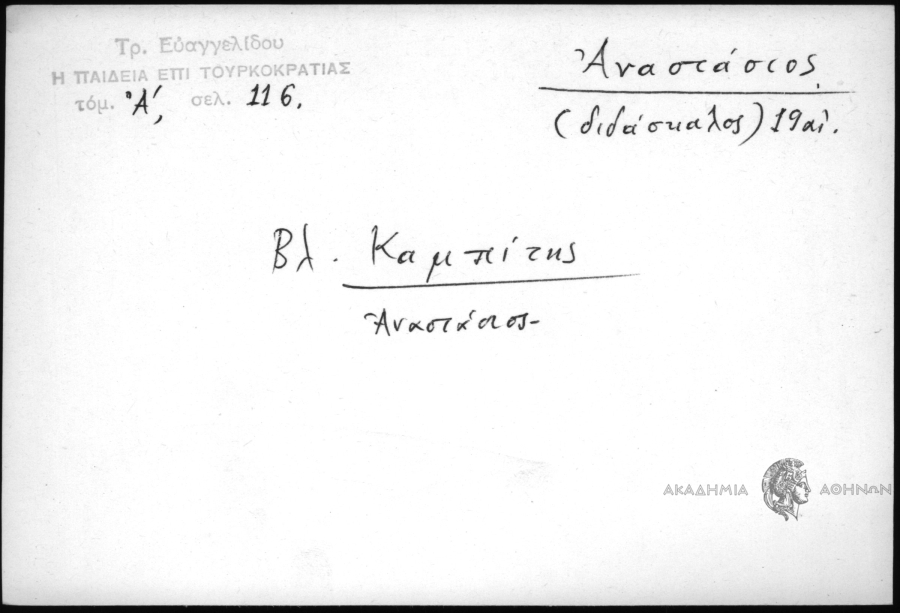 Τρ. Εὐαγγελίδου
Η ΠΑΙΔΕΙΑ ΕΠΙ ΤΟΥΡΚΟΚΡΑΤΙΑΣ
τόμ. Ἀ, σελ. 116.
Ἀναστάσιος
(διδάσκαλος) 19 αἰ.
Βλ. Καμπίτης
Ἀναστάσιος-
ΑΚΑΔΗΜΙΑ ΑΘΗΝΩΝ